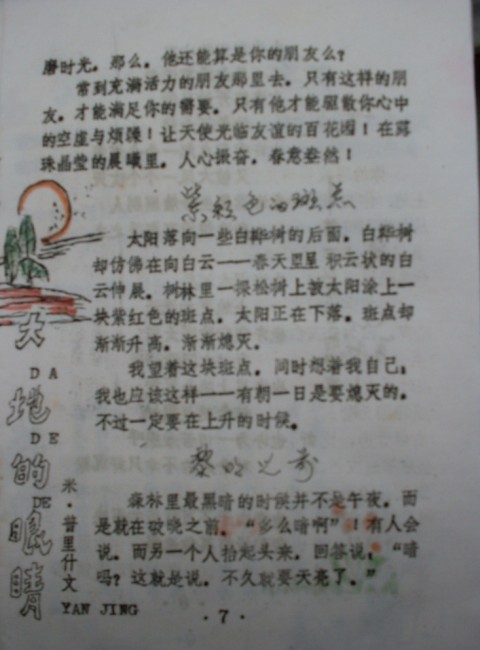 磨时光。那么。他还能算是你的朋友么?
常到充满活力的朋友那里去。只有这样的朋
友。才能满足你的需要。只有他才能驱散你心中
的空虚与烦躁!让天使光临友谊的百花园!在露
珠晶莹的晨曦里。人心振奋。春意盎然!
紫红色的斑点
太阳落向一些白桦树的后面。白桦树
却仿佛在向白云——春天里呈积云状的白
云伸展。树林里一棵松树上被太阳涂上一
块紫红色的斑点。太阳正在下落。斑点却
渐渐升高。渐渐熄灭。
我望着这块斑点。同时想着我自己:
我也应该这样——有朝一日是要熄灭的。
不过一定要在上升的时候。
黎明之前
森林里最黑暗的时候并不是午夜。而
是就在破晓之前。“多么暗啊”!有人会
说。而另一个人抬起头来。回答说:“暗
吗?这就是说。不久就要天亮了。”
大
DA
地
DE
的
DE
眼
睛
YAN JING
米·普里什文
·7·